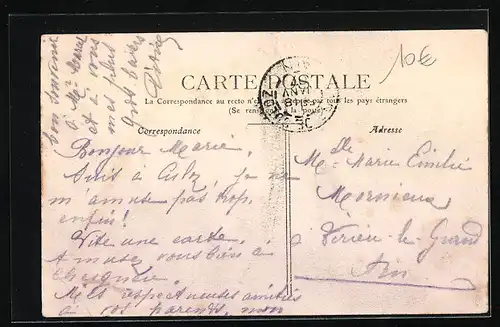 bon souvenir
à Mr
et à vous
mes plus
Gros baisers
10€
CARTE POSTALE
La Correspondance au recto n'est pas par tous les pays étrangers
(Se renseigner à la poste)
Correspondance
Adresse
Bonjour Marie,
Suis à je ne
m'amuse pas trop,
enfin!
Vite une carte.
Amusez vous bien à
Mes respectueuses amitiés
à vos parents, mon
Melle Marie Emilie
Mornieux
à Virieu-le-Grand
Ain